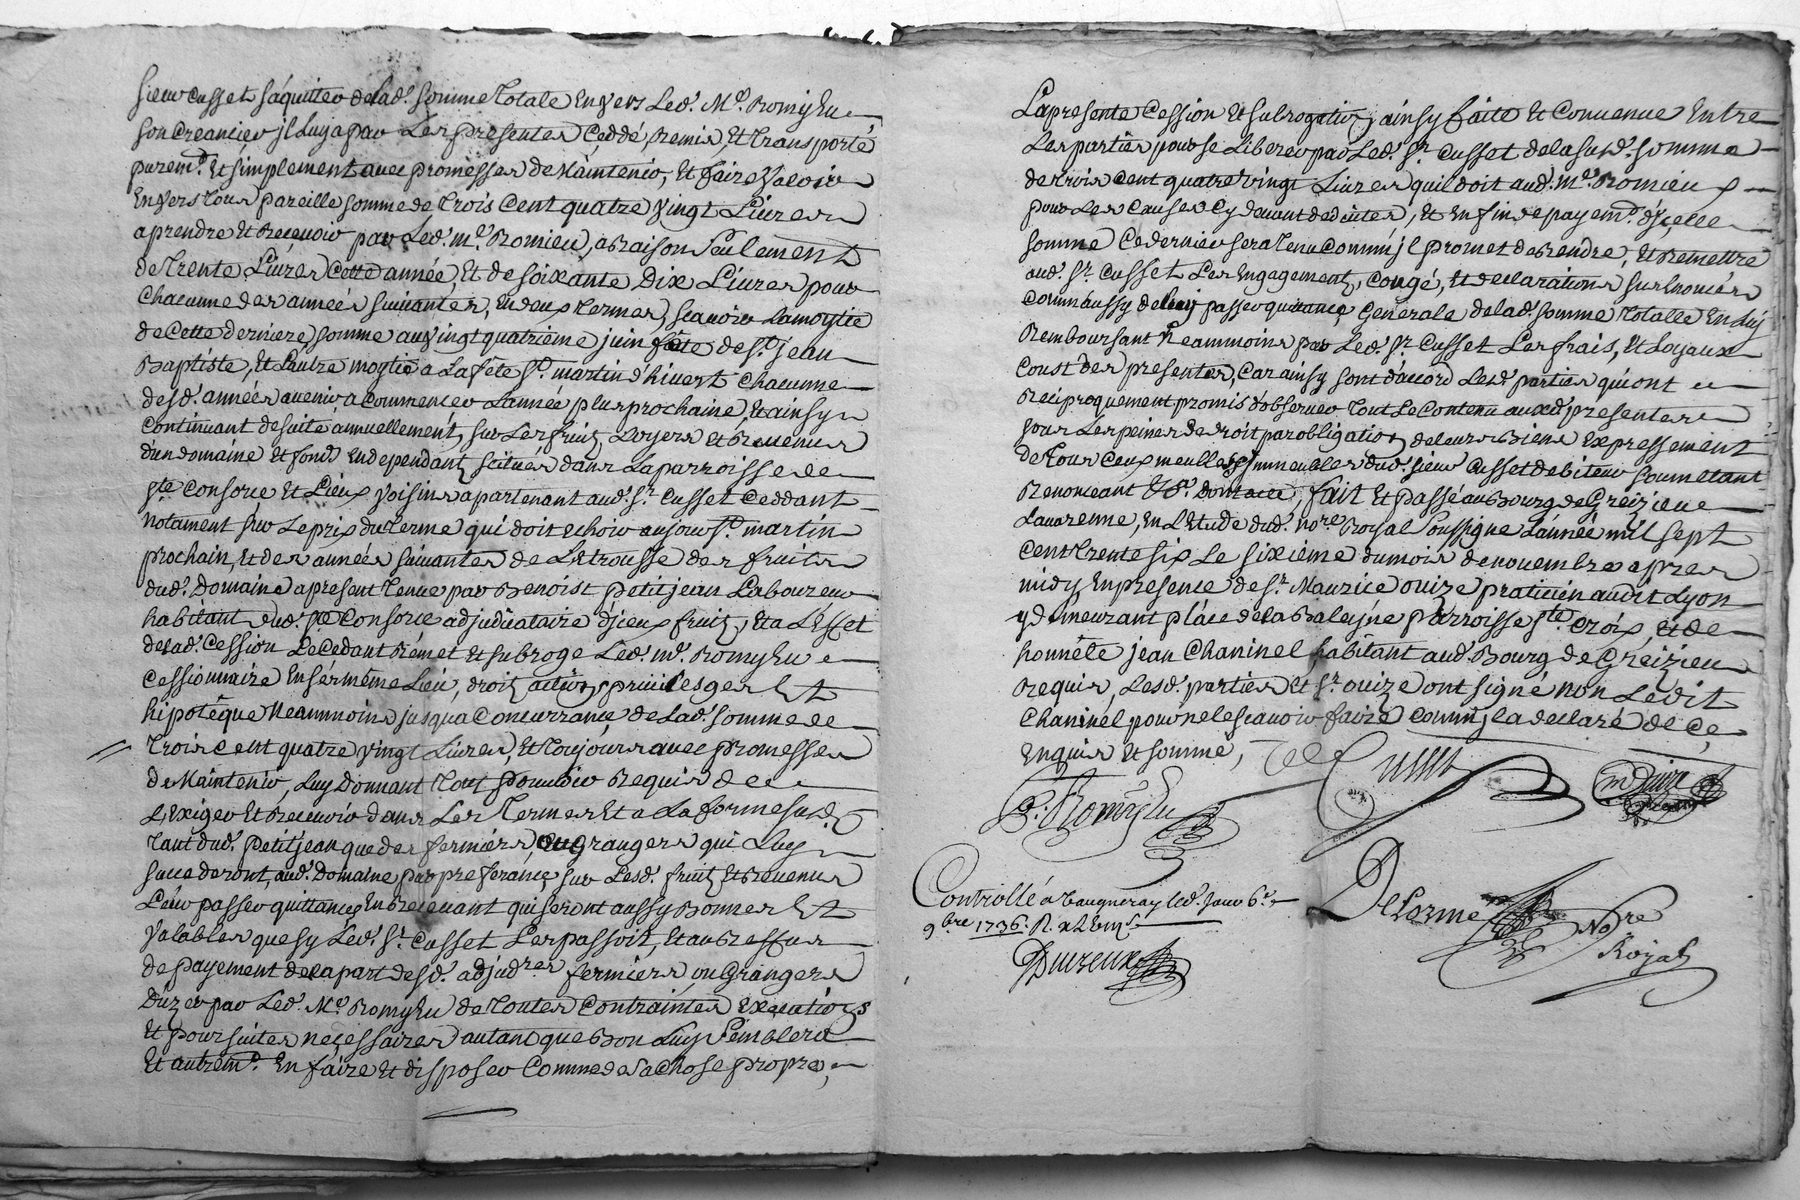 sieur Cusset s'aquitter de lad. somme totale envers Led. Me. Romyeu
son creancier jl luy a par Les presentes Ceddé Remis, et transporté
puremt. et simplement avec promesses de Maintenir, et faire Valoir
Envers tous pareille somme de trois Cent quatre vingt Livres
a prendre et Recevoir par Led. me. Romieu, a Raison seulement
de trente Livres Cette année, et de soixante Dix Livres pour
Chacunne des années suivantes, en deux termes, scavoir La moytié
de Cette derniere, somme au vingt quatrieme juin fête de st. jean
Baptiste, et L'autre moytié a La fête st. martin d'hivert Chacunne
desd. années avenir a Commencer L'année plus prochaine, et ainsy
Continuant de suite annuellement, sur Les fruitz Loyers et Revenus
d'un domaine et fondz en dependantz scitués dans La parroisse de
ste. Consorce et Lieux voisins apartenant aud. sr. Cusset Ceddant
Notament sur Le prix du terme qui doit echoir au jour st. martin
prochain, et des années suivantes de L'Etrousse des fruits
dud. Domaine apresent tenue par Benoist petit jean Laboureur
habitant dud. ste. Consorce adjudicataire d'jceux fruitz, Et a L'Effet
de lad. Cession Le Cedant Rémet et subroge Led. me. Romyeu
Cessionnaire en ses même Lieu, droitz actions privileges Et
hipotêque Neanmmoins jusqua Concurrance de Lad. somme de
trois cent quatre vingt Livres, et toujours avec promesses
de Maintenir, Luy donnant tout pouvoir Requis de
L'Exiger et Recevoir dans Les termes Et a La forme susd.
tant dud. petit jean que des fermiers ou grangers qui Luy
succederont, aud. domaine par preferance sur Lesd. fruitz et Revenus
Leur passer quittances en Recevant qui seront aussy Bonnes Et
Valables que sy Led. sr. Cusset Les passoit, et au Reffus
de payement de la part desd. adjudres. fermiers ou Grangers
D'uzer par Led. Me. Romyeu de toutes Contraintes Executions
et poursuites necessaires autant que Bon Luy semblera
et autremt. En faire et disposer Comme de sa Chose propre,
La presente Cession et subrogation, ainsy faite et Convenue Entre
Les parties pour se Liberer par Led. sr. Cusset de la susd. somme
de trois cent quatre vingt Livres qu'il doit aud. me. Romieu
pour Les Causes Cy devant deduites, et en fin de payemt. d'jcelle
somme Ce dernier sera tenu Comm'jl promet de Rendre, et Remettre
aud. sr. Cusset Les Engagement, Congé, et declarations sus Enoncés
Comm'aussy de luy passer quittance generale de lad. somme totalle En Luy
Remboursant Neanmoins par Led. sr. Cusset Les frais, et Loyaux
Coust des presentes, Car ainsy sont d'accord Lesd. parties qui ont
Reciproquement promis d'observer tout Le Contenu auxd. presentes
sous Les peines de droit par obligation de leurs Biens Expressement
de tous Ceux meubles jmmeubles dud. sieur Cusset debiteur soumetant
Renonceant &c. dont acte, fait et passé au Bourg de Greizieu
La varenne, en L'Etude dud. nore. Royal soussigné L'année mil sept
Cent trente six Le sixieme du mois de novembre apres
midy En presence de sr. Maurice ouize praticien audit Lyon
y demeurant place de la Baleyne parroisse ste. Croix, et de
honnête jean Chaninel habitant aud. Bourg de Greizieu
Requis, Lesd. parties et sr. ouize ont signé non Ledit
Chaninel pour ne le scavoir faire Comm'jl a declaré de Ce
enquis et sommé,
Cusset
Romyeu
m ouize
Controllé a Vaugneray led. jour 6e.
9bre 1736. R.
DeLorme Nore
Royal